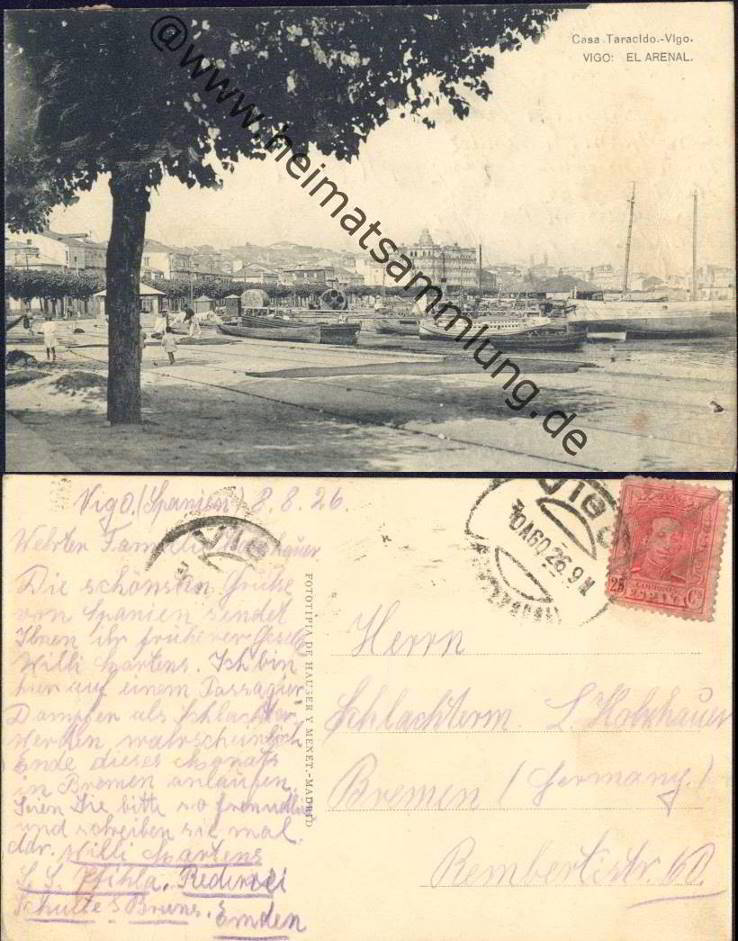 Casa Taracido.-Vigo.
VIGO: EL ARENAL.
@www.heimatsammlung.de
Vigo (Spanien) 8.8.26.
Familie
Die schönsten Grüße
von Spanien sendet
Ihnen ihr früherer
Willi Martens. Ich bin
hier auf einem Passagier
Dampfer als Schlachter
werden wahrscheinlich
Ende dieses Monats
in Bremen anlaufen.
Seien Sie bitte so freundlich
und schreiben sie mal.
Willi Martens
Schulte & Bruns. Emden
FOTOTIPIA DE HAUSER Y MENET.-MADRID
VIGO
VIGO
26
25 Cs
ESPAÑA
Herrn
Schlachterm. L Holzhauer
Bremen (Germany.)
Rembertistr. 60.